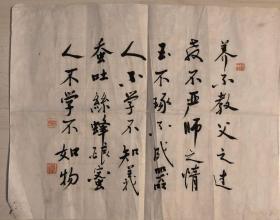 养不教父之过
教不严师之惰
玉不琢不成器
人不学不知义
蚕吐丝蜂酿蜜
人不学不如物